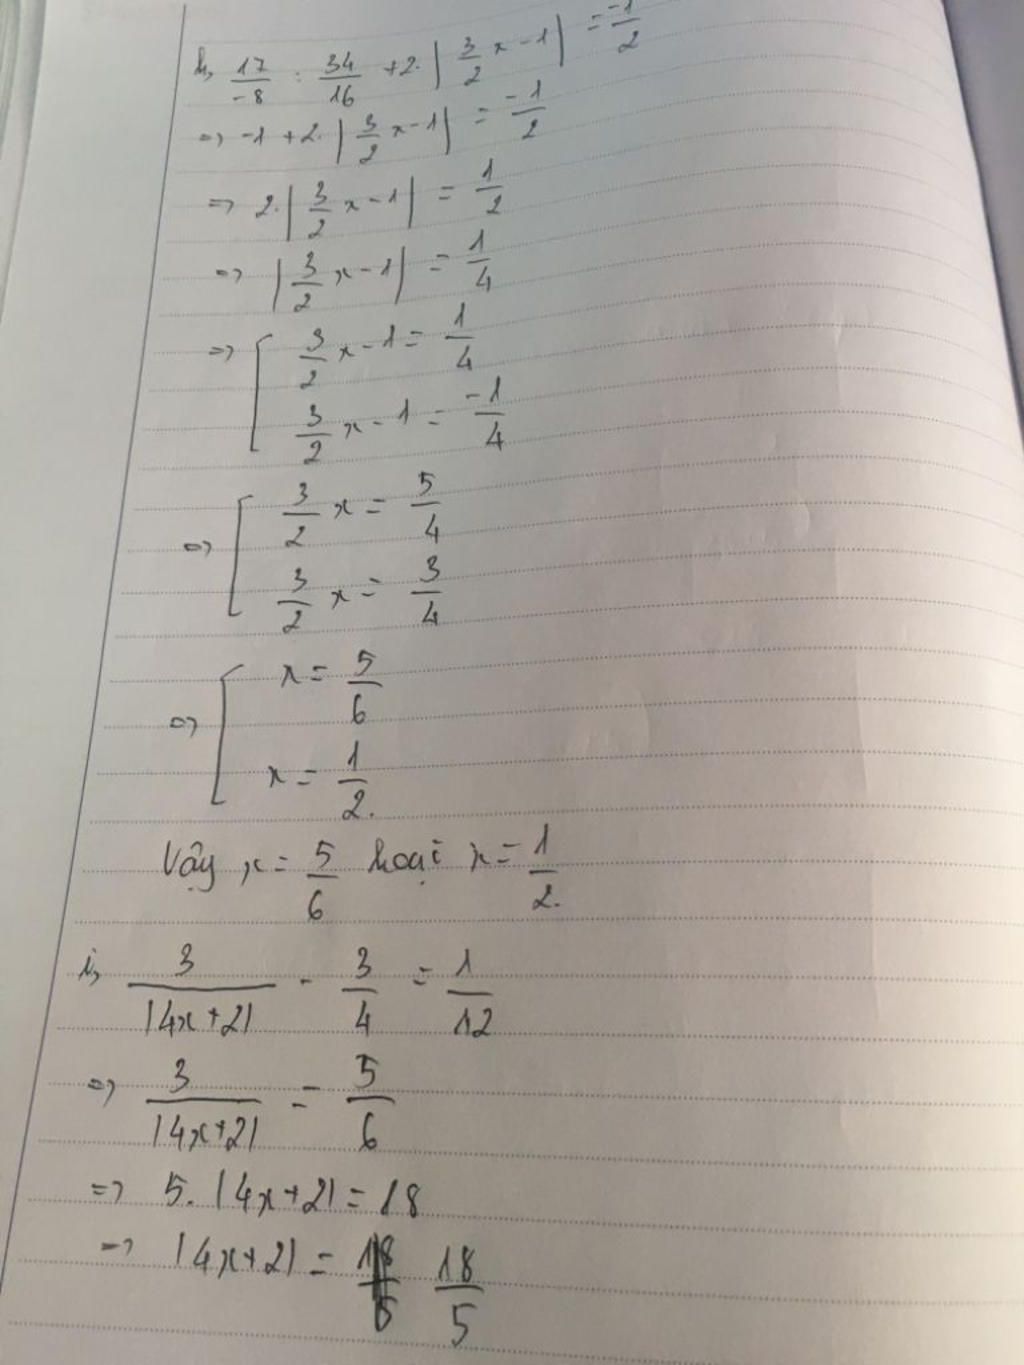 h, 17/-8 : 34/16 + 2. |3/2 x - 1| = -1/2
=> -1 + 2. |3/2 x - 1| = -1/2
=> 2. |3/2 x - 1| = 1/2
=> |3/2 x - 1| = 1/4
=> [ 3/2 x - 1 = 1/4
3/2 x - 1 = -1/4
=> [ 3/2 x = 5/4
3/2 x = 3/4
=> [ x = 5/6
x = 1/2.
Vậy x = 5/6 hoặc x = 1/2.
i, 3/|4x+2| - 3/4 = 1/12
=> 3/|4x+2| = 5/6
=> 5. |4x+2| = 18
=> |4x+2| = 18/5